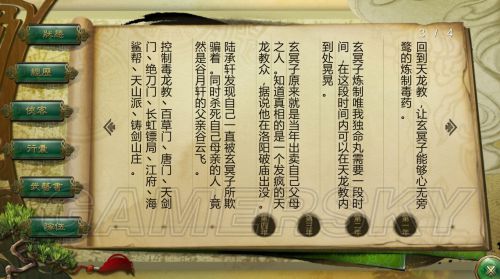 3 / 4
狀態
經歷
俠客
行囊
武藝書
隊伍
回到天龙教，让玄冥子能够心无旁
鹜的炼制毒药。
玄冥子炼制唯我独命丸需要一段时
间，在这段时间内可以在天龙教内
到处晃晃。
玄冥子原来就是当年出卖自己父母
之人。知道真相的是一个发疯的天
龙教众，据说他在洛阳破庙出没。
陆承轩发现自己一直被玄冥子所欺
骗着。同时杀死自己母亲的人，竟
然是谷月轩的父亲谷云飞。
控制毒龙教、百草门、唐门、天剑
门、绝刀门、长虹镖局、江府、海
鲨帮、天山派、铸剑山庄。
第一年
第二年
第三年
第四年
GAMERSKY